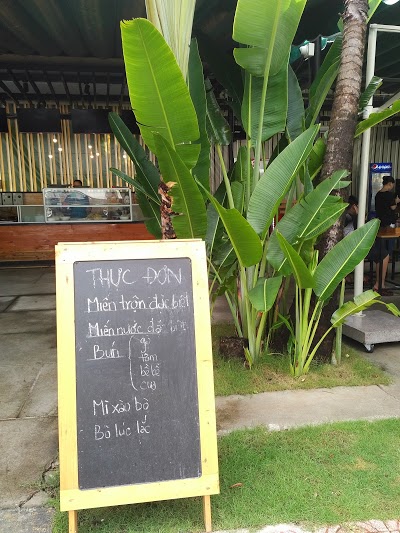 THỰC ĐƠN
Miến trộn đặc biệt
Miến nước đặc biệt
Bún
gỏ
tôm
bề bề
cua
Mì xào bò
Bò lúc lắc